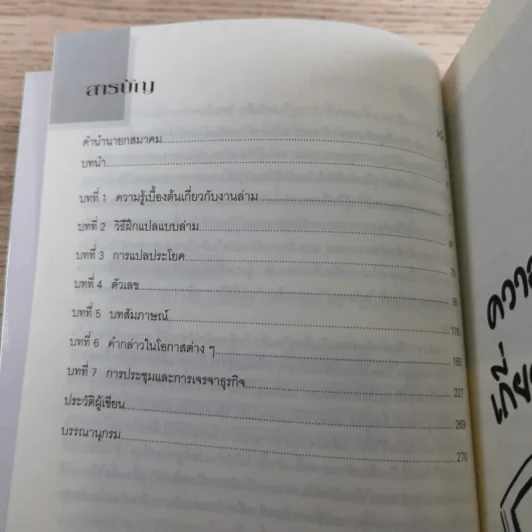 สารบัญ
คำนำนายกสมาคม
บทนำ
บทที่ 1 ความรู้เบื้องต้นเกี่ยวกับงานล่าม
บทที่ 2 วิธีฝึกแปลแบบล่าม
บทที่ 3 การแปลประโยค
บทที่ 4 ตัวเลข
บทที่ 5 บทสัมภาษณ์
บทที่ 6 คำกล่าวในโอกาสต่าง ๆ
บทที่ 7 การประชุมและการเจรจาธุรกิจ 227
ประวัติผู้เขียน 269
บรรณานุกรม 270